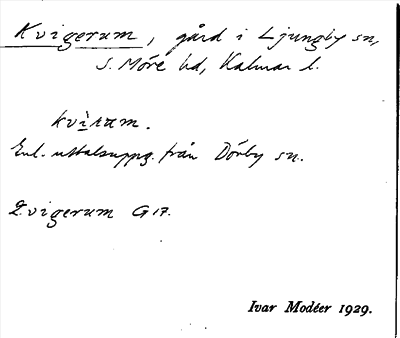 Kvigerum, gård i Ljungby sn,
S. Möre hd, Kalmar l.
kvìram.
Enl. uttalsuppg. från Dörby sn.
Qvigerum G17.
Ivar Modéer 1929.